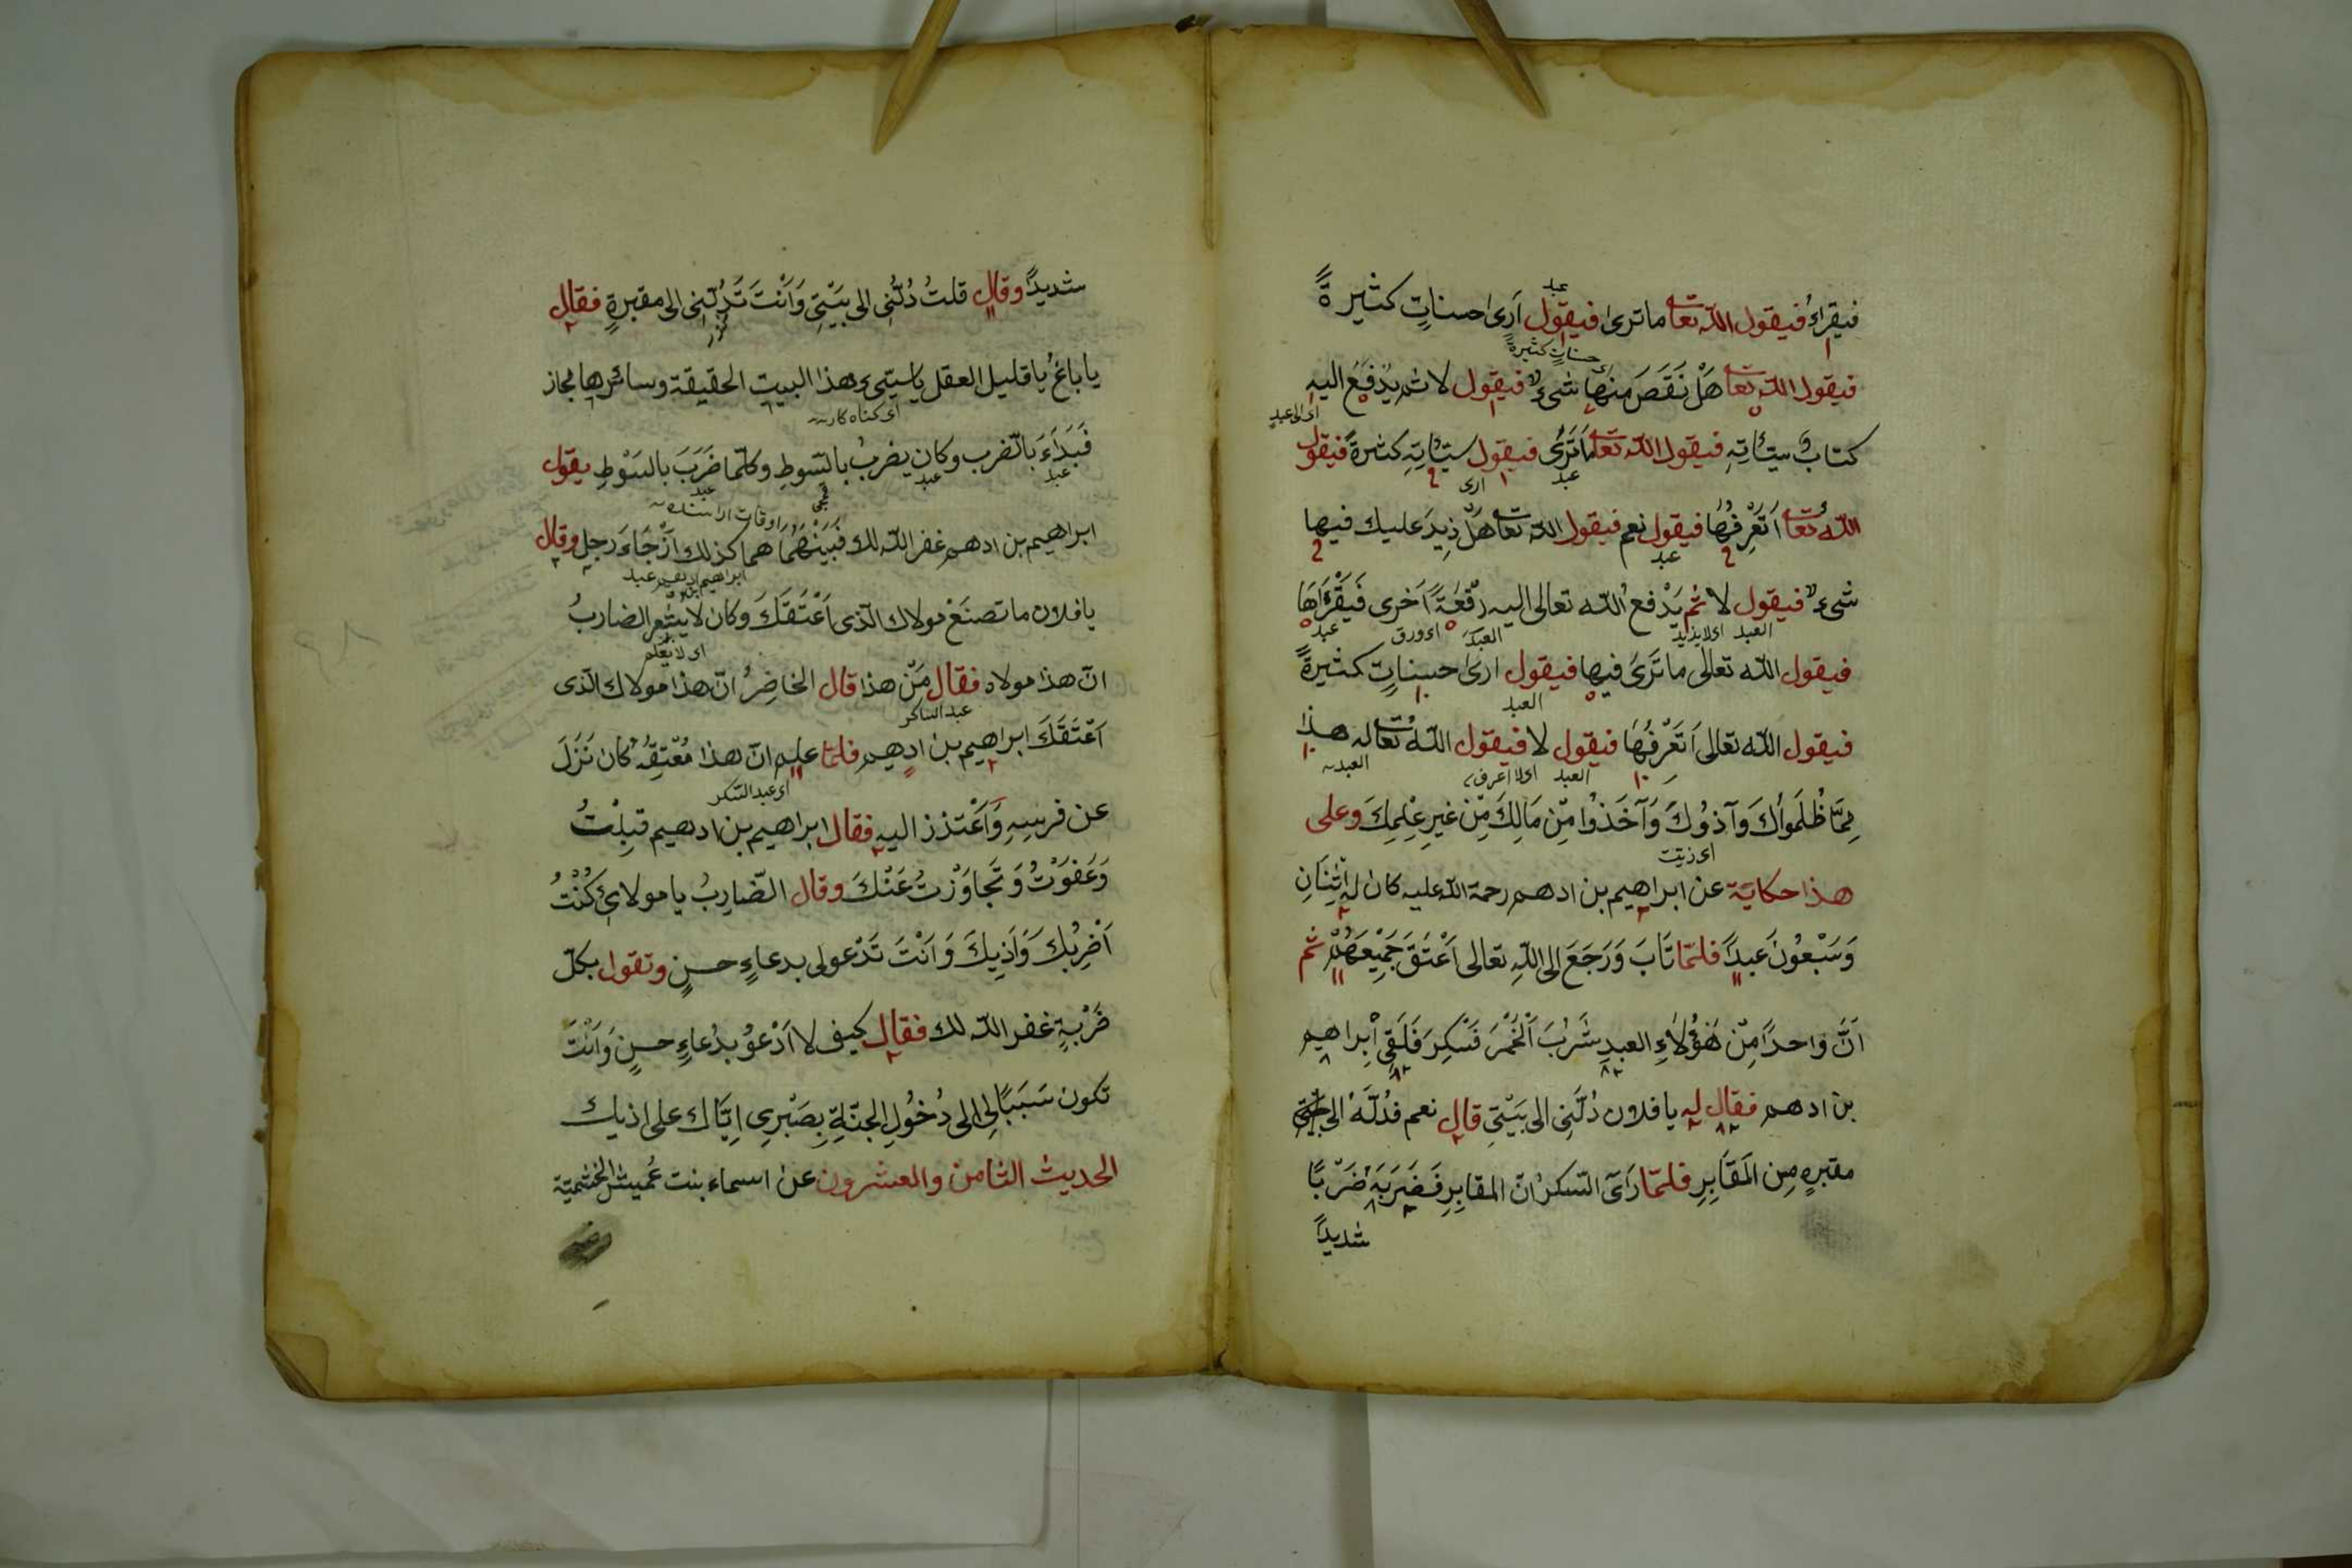 فيقراءُ فيقول اللّه تعا ما ترى فيقول اَرىٰ حسناتٍ كثيرةً
عبد
فيقول اللّه تعا هَلْ نَقَصَ منهَا شىءٌ فيقول لا ثم يُدْفَعُ اليه
حسناتٍ كثيرةً
كتابُ سيّئاتِهِ فيقول اللّه تعا مَا تَرَىٰ فيقول سيّئاتِهِ كثرةً فيقول
اى الى عبد
عبد ارى
اللّهُ تعا اَتَعْرِفُهَا فيقول نعم فيقول اللّه تعا هَلْ زِيدَ عليك فيها
عبد
شىءٌ فيقول لا ثم يَدْفع اللّه تعالى اليه رُقْعَةً اَخرى فَيَقْرَاَهَا
العبد اى لا يزيد العبد اى ورق عبد
فيقول اللّه تعالى ما تَرَىٰ فيها فيقول ارىٰ حسناتٍ كثيرةً
العبد
فيقول اللّه تعالى اَتَعْرِفُهَا فيقول لا فيقول اللّه تعا له هذا
العبد اى لا اعرف العبد
مِمَّا ظُلَمواُكَ وَآذوُكَ وَآخَذوُا مِّنْ مَالِكَ مِّنْ غيرِ عِلْمِكَ وعلى
اى زيتت
هذا حكاية عن ابراهيم بن ادهم رحمة اللّه عليه كان له اثْنَانِ
وَسَبْعُونَ عبدًا فلمّا تَابَ وَرَجَعَ الى اللّهِ تعالى اَعْتَقَ جَمِيْعَهُمْ ثم
اَنَّ وَاحدًا مِّنْ هَؤُلَاءِ العبدِ شَرْبَ اَلْخَمْرَ فَسْكِرَ فَلَقِىَ اْبْراهيم
بن ادهم فقال له يا فلان دُلَّنِى الى بَيْتِى قال نعم فدُلَّهُ الى
مقبرهٍ مِن المَقَابِرِ فلمّا رَآىَ السّكرُ انّ المقابِرِ فَضَرَبَهُ ضَرْبًا
شديدًا
شديدًا وقال قلتُ دُلَّنِى الى بَيْتِى وَاَنْتَ تَدُلّنِى الى مقبرةٍ فقال
يا باغُ يا قليل العقل يا سيّىء هذا البيت الحقيقة وسائرها مجاز
اى كناه كار
فَبَدَاَءَ بالضّرب وكان يضربُ بالسّوطِ وكلّما ضَرَبَ بالسَوْطِ يقول
عبد عبد عبد
ابراهيم بن ادهم غفر اللّه لك فَبَيْنَهُمَا هما كذلك اَزْجَاءَ رجل وقال
يا فلان ما تصنَعْ مولاك الّذى اَعْتَقَكَ وكان لا يشعر الضاربُ
ابراهيم عبد
اى لا يَعْلَم
انّ هذا مولاه فقال مَنّ هذا قال الحاضِرُ انّ هذا مولاك الّذى
عبد الساكر
اَعْتَقَكَ ابراهيم بن ادهم فلمّا علم انّ هذا مُعْتِقُهُ كان نَزَلَ
اى عبد السّكر
عن فرسِهِ وَاَعْتذذ اليهِ فقال ابراهيم بن ادهيم قبِلْتُ
وَعَفَوْتُ وَتَجاوَزْتُ عَنْكَ وقال الضّارِبُ يا مولاىَ كُنْتُ
اَضْرِبُكَ وَاَذِيكَ وَاَنْتَ تَدْعولى بدعاءٍ حسنٍ وتقول بكلّ
ضَرْبةٍ غفر اللّه لك فقال كيف لا اَدْعوُ بدُعاءٍ حسنٍ وَاَنْتَ
تكون سَبَبًا لِى الى دُخوُلِ الجنّةِ بِصَبْرِى اِيّاك على اذيك
الحديث الثامن والعشرون عن اسماء بنت عُميش الخثميّة